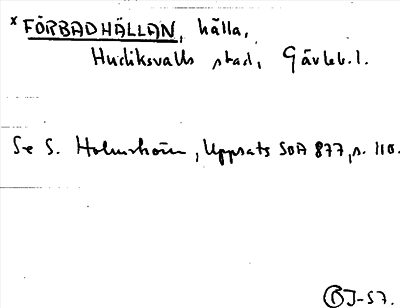 x FÖRBADHÄLLAN, hälla,
Hudiksvalls stad, Gävleb.l.
Se S. Holmström, Uppsats SOA 877, s. 110.
BJ-57.